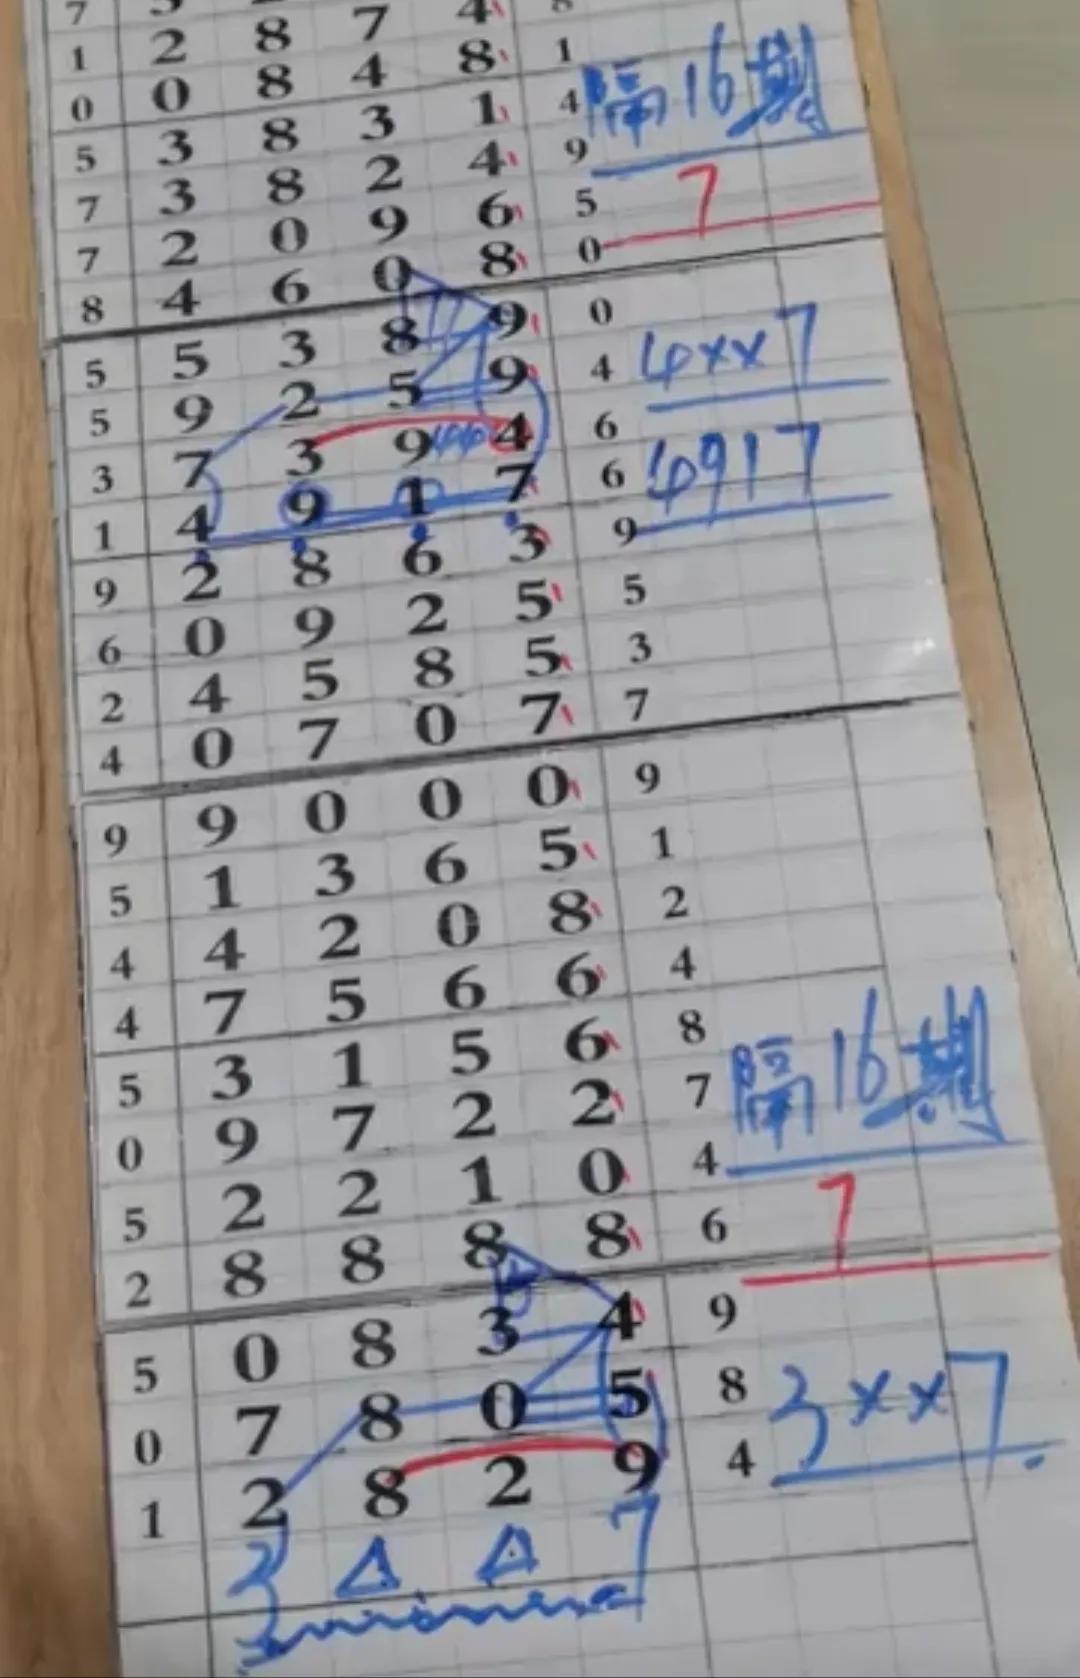 7 4 8
1 2 8 7 4 1
0 0 8 4 8 4 隔16期
5 3 8 3 1 9
7 3 8 2 4 5 7
7 2 0 9 6 0
8 4 6 0 8
5 5 3 8 9 0
5 9 2 5 9 4 4xx7
3 7 3 9 4 6
1 4 9 1 7 6 4917
9 2 8 6 3 9
6 0 9 2 5 5
2 4 5 8 5 3
4 0 7 0 7 7
9 9 0 0 0 9
5 1 3 6 5 1
4 4 2 0 8 2
4 7 5 6 6 4
5 3 1 5 6 8
0 9 7 2 2 7 隔16期
5 2 2 1 0 4
2 8 8 8 8 6 7
5 0 8 3 4 9
0 7 8 0 5 8 3xx7
1 2 8 2 9 4
3 △ △ 7